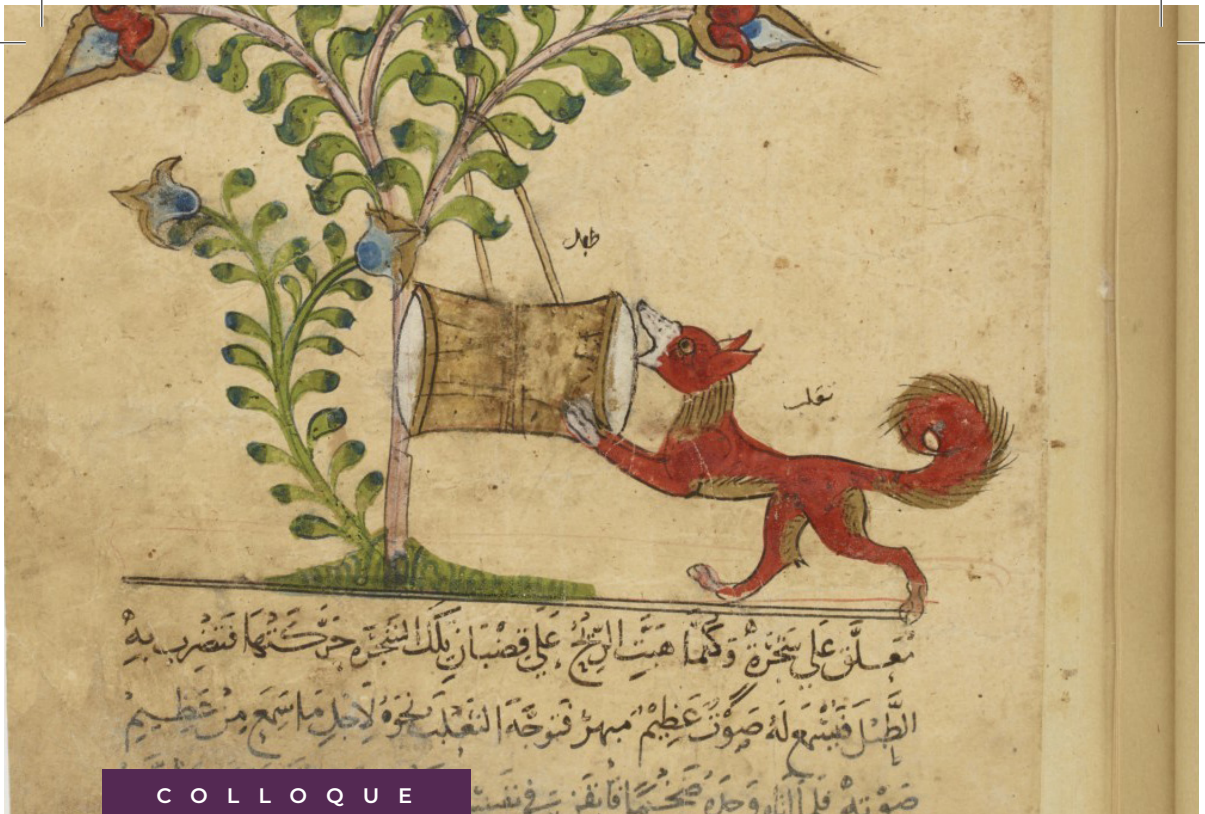 طبل
ثعلب
مُعَلَّق عَلَى شَجَرَةٍ وَكُلَّمَا هَبَّتِ الرِّيحُ عَلَى قضْبَانِ تِلْكَ الشَّجَرَةِ حَرَّكَتْهَا فَتَضْرِب بِهِ
الطَّبْلَ فَيُسْمَع لَهُ صَوْتٌ عَظِيمٌ فَتوَجَّهَ الثَعْلَب نحْوَهُ لِاَجلِ مَا سَمِعَ مِنْ عَظِيمِ
صَوْتِهِ فَلَمَّا اَتَاه وَجَدَهُ ضَخْمًا فايقن في
COLLOQUE